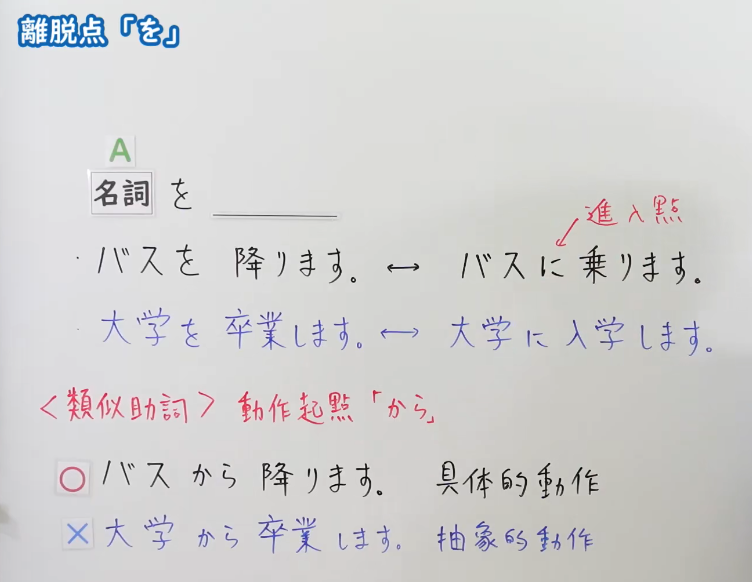 離脱点「を」
A
名詞 を ________
・バスを 降ります。 ↔ バスに 乗ります。
進入點
・大学を 卒業します。 ↔ 大学に 入学します。
<類似助詞> 動作起點「から」
○ バスから 降ります。 具体的動作
× 大学から 卒業します。 抽象的動作